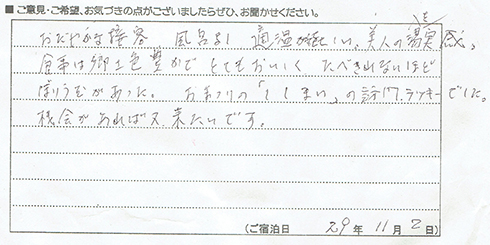 ■ご意見・ご希望、お気づきの点がございましたらぜひ、お聞かせください。
おだやかな接客 風呂よし 適温が嬉しい。美人の湯を実感。
食事は郷土色豊かで とてもおいしく たべきれないほど
ぼりうむがあった。 おまつりの「ししまい」の訪れ、ラッキーでした。
機会があれば又、来たいです。
(ご宿泊日 29年 11月 2日)